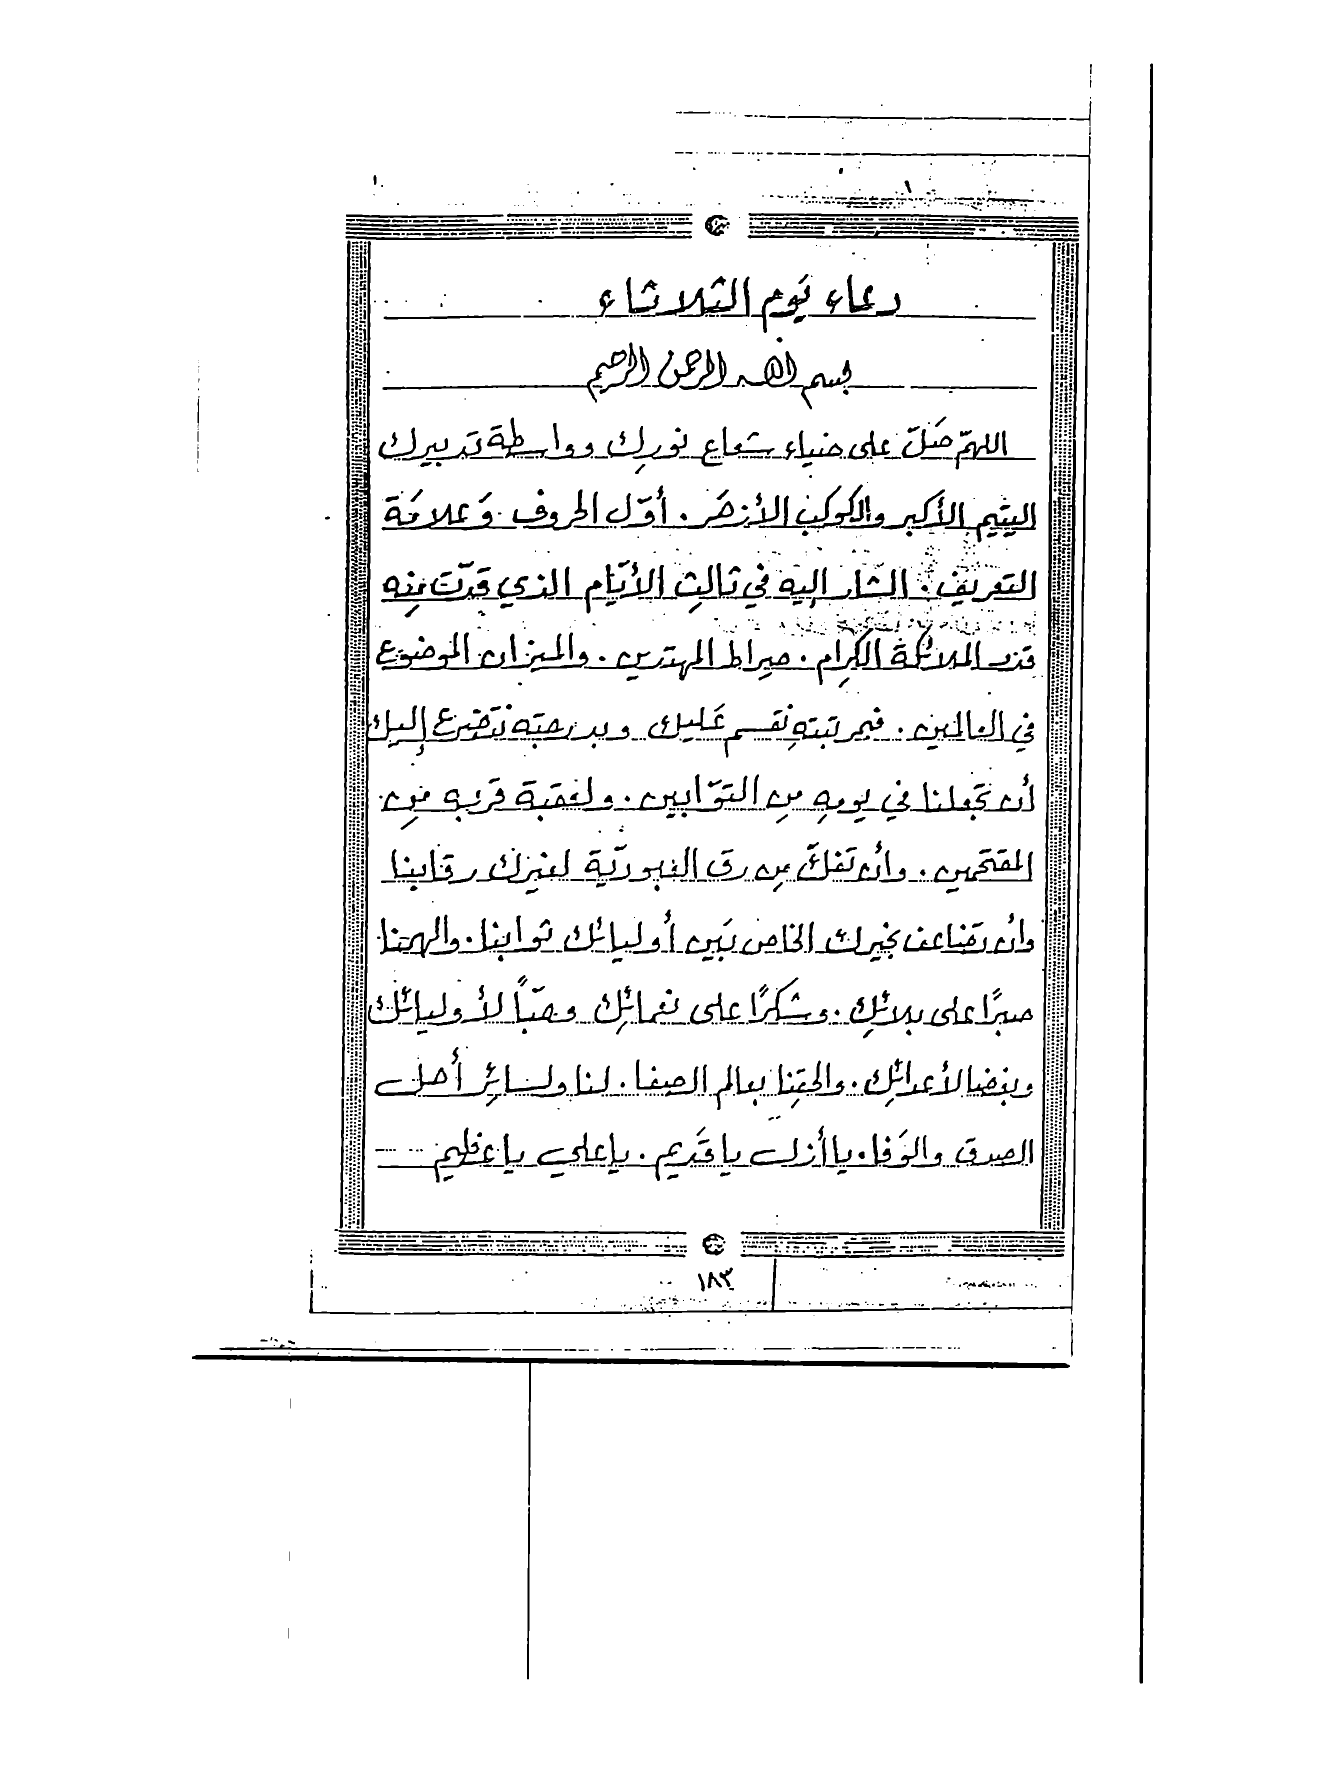 دعاء يَوم الثلاثاء
بسم الله الرحمن الرحيم
اللهمّ صَلّ على ضياء شعاع نورك وواسطة تدبيرك
اليتيم الأكبر والكوكب الأزهَر . أوّل الحروف وَعلامَة
التعريف . المشار إليه في ثالثِ الأيّام الذي قدّت مِنه
المَلائكة الكِرام . صراط المهتدين . والميزان الموضوع
في العالمين . فبمرتبتهِ نقسم عَليك وبدرجته نتَضرع إليك
أن تجعلنا في يومهِ مِن التوّابين . ولعقبة قربه مِن
المقتَحمين . وأن تَفكّ مِن رق العبوديّة لغيرك رقابنا
وأن تضاعف بخيرك الخاص بَين أوليائك ثوابنا . والهمنا
صبرًا على بلائِك . وشكرًا على نعمائِك وحبّاً لأوليائك
وبغضا لأعدائِك . والحقِنا بعالم الصفا . لنا ولسائِر أهل
الصدق والوَفا . يا أزل يا قَديم . يا علي يا عظيم
١٨٣